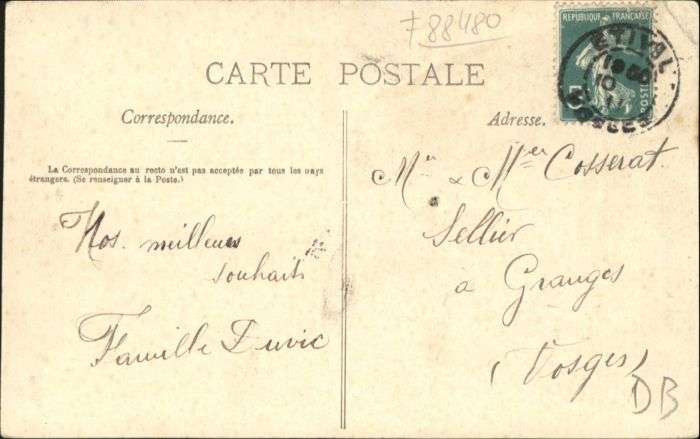 F88480
REPUBLIQUE FRANÇAISE
ETIVAL
VOSGES
5
POSTES
CARTE POSTALE
Correspondance.
La Correspondance au recto n'est pas acceptée par tous les pays
étrangers. (Se renseigner à la Poste.)
Nos meilleurs
souhaits
Famille Duvic
Adresse.
Mr & Mme Cosserat
Sellier
à Granges
(Vosges)
DB